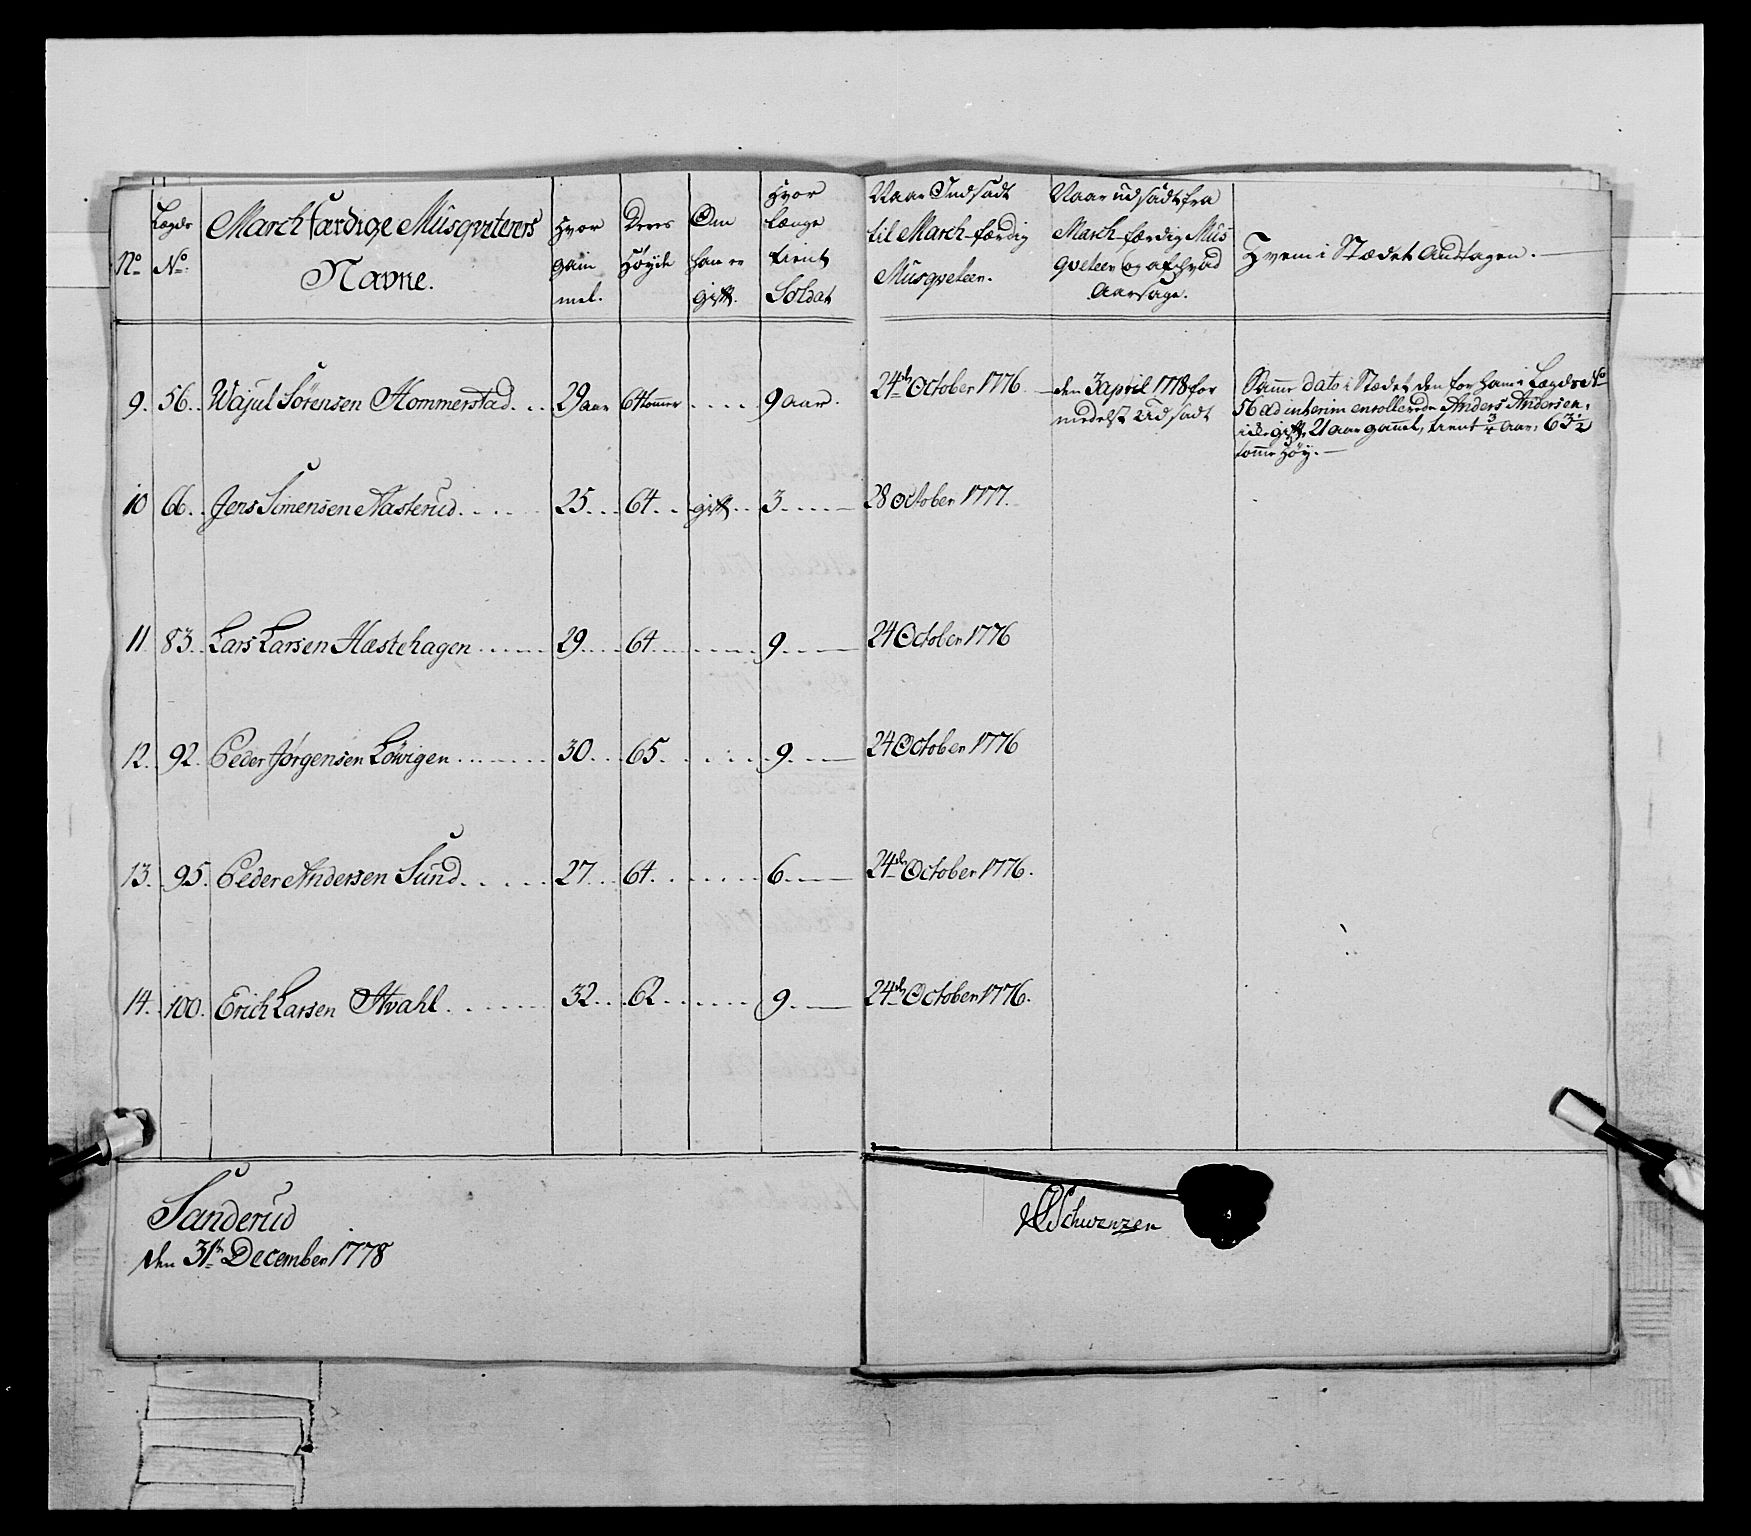 No
Lægds No
March færdige Musqveterers Navne.
Hvor gam mel.
Deres Høyde
Om han er gift.
Hvor længe tient Soldat
Naar Indsadt til March-færdig Musqveteer.
Naar udsadt fra March-færdig Mus qveteer og af hvad Aarsage.
Hvem i Stædet Andtagen.
9. 56. Wajul Sörensen Hommerstad. 29 aar 64 tommer 9 aar. 24de October 1776. den 3 april 1778 for medelst Udsadt
Samme dato i Stædet den for ham i Lægds No
56 ad interim enrollerede Anders Andersen,
icke gift, 21 aar gammel, tient 3/4 aar, 63 1/2
tomme høy.
10 66. Jens Simensen Nasterud. 25. 64. gift. 3. 28 October 1777.
11 83. Lars Larsen Hæstehagen 29. 64. 9. 24 October 1776
12. 92. Peder Jörgensen Löwigen 30. 65. 9. 24 October 1776
13. 95. Peder Andersen Sund. 27. 64. 6. 24de October 1776.
14. 100. Erich Larsen Hvahl. 32. 62. 9. 24de October 1776.
Sanderud
den 31te December 1778
Schwenzen